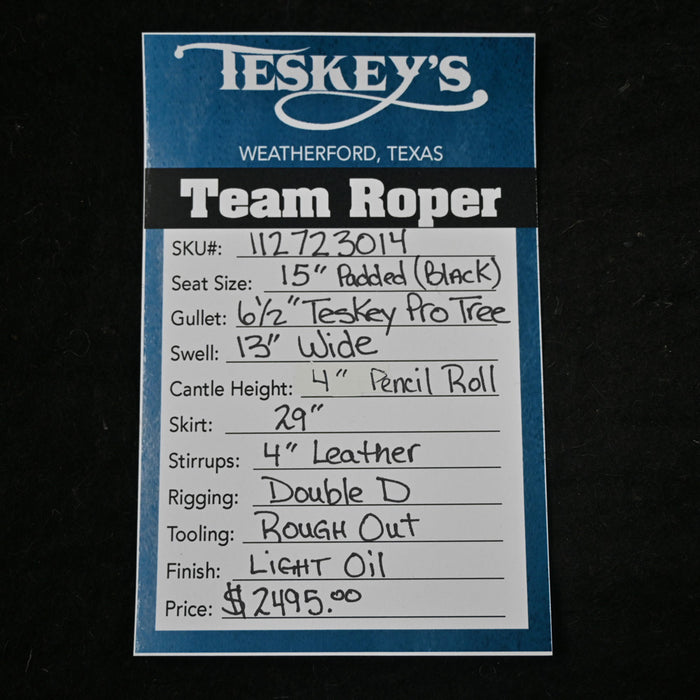 TESKEY'S
WEATHERFORD, TEXAS
Team Roper
SKU#: 112723014
Seat Size: 15" Padded (Black)
Gullet: 6½" Teskey Pro Tree
Swell: 13" Wide
Cantle Height: 4" Pencil Roll
Skirt: 29"
Stirrups: 4" Leather
Rigging: Double D
Tooling: ROUGH Out
Finish: LIGHT Oil
Price: $2495.00